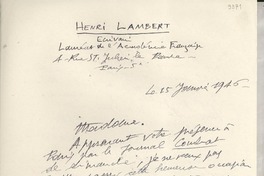 HENRI LAMBERT
Ecrivain
Lauréat de l'Académie Française
4 - Rue St. Julien le Pauvre
Paris 5e
Le 25 Janvier 1946
Madame.
Apprenant votre présence à
Paris par le Journal Combat
de ce matin, je ne veux pas